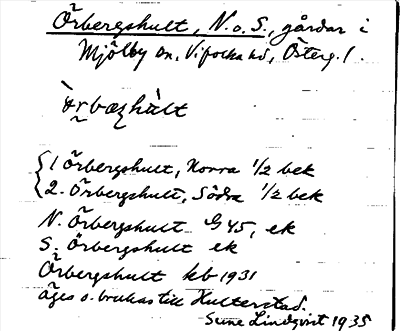 Örbergshult, N. o. S., gårdar i
Mjölby sn, Vifolka hd, Österg. l.
{1 Örbergshult, Norra 1/2 bek
{2. Örbergshult, Södra 1/2 bek
N. Örbergshult G 45, ek
S. Örbergshult ek
Örbergshult kb 1931
äges o. brukas till Hulterstad.
Sune Lindqvist 1935